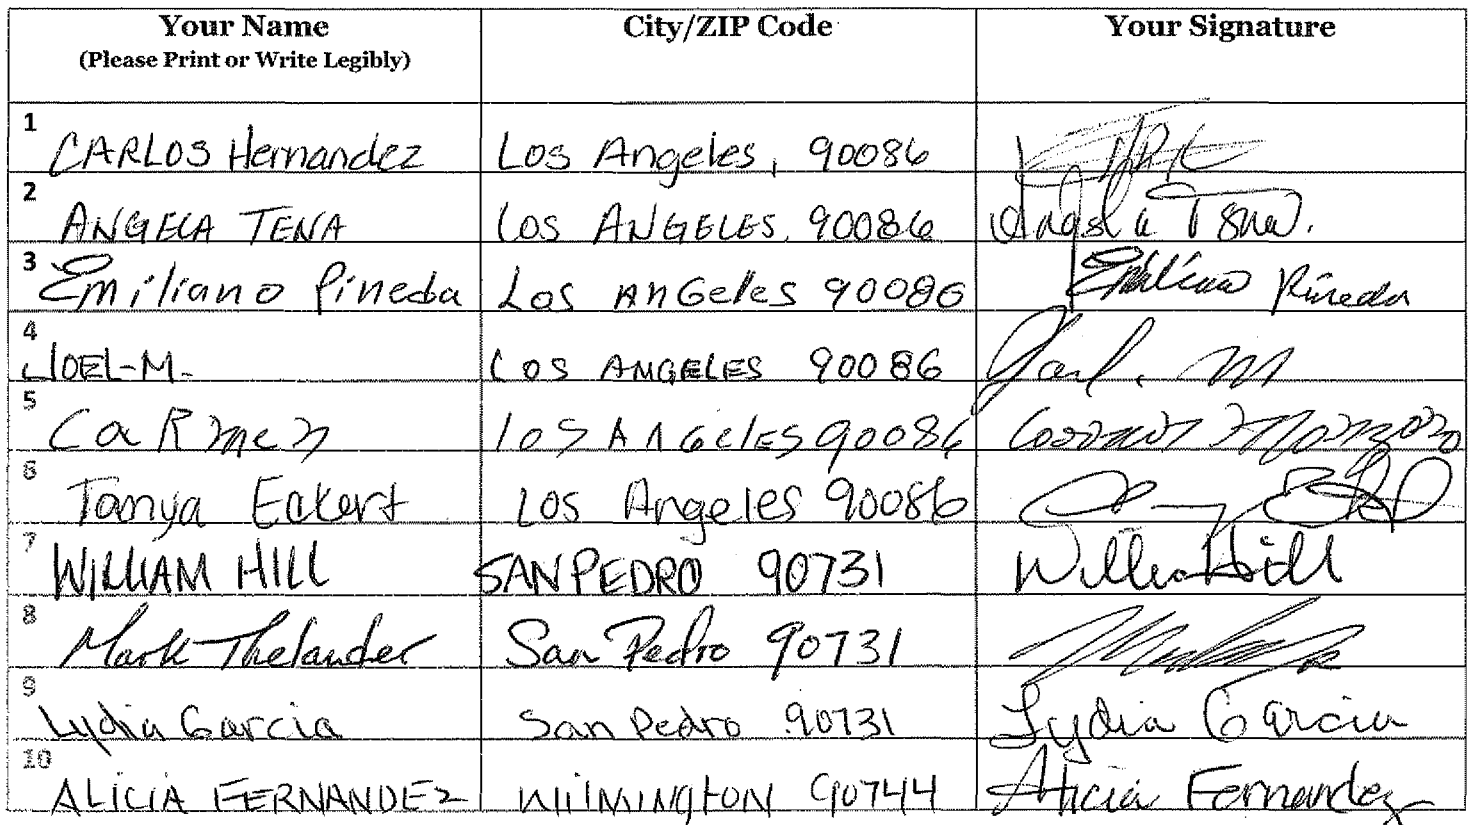 Your Name City/ZIP Code Your Signature
(Please Print or Write Legibly)
1 CARLOS Hernandez Los Angeles, 90086
2 ANGELA TENA LOS ANGELES, 90086 Angela Tena.
3 Emiliano Pineda Los AnGeles 90086 Emiliano Pineda
4 JOEL-M. LOS ANGELES 90086
5 CaRmen los ANGelES 90086
6 Tanya Eckert Los Angeles 90086
7 WILLIAM HILL SAN PEDRO 90731 William Hill
8 Mark Thelander San Pedro 90731
9 Lydia Garcia San Pedro 90731 Lydia Garcia
10 ALICIA FERNANDEZ WilMINgtON 90744 Alicia Fernandez